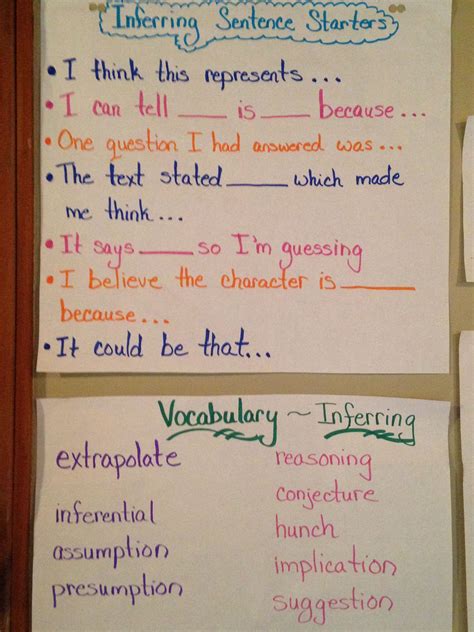 Inferring Sentence Starters
• I think this represents...
• I can tell ____ is ____ because...
• One question I had answered was...
• The text stated ____ which made
me think...
• It says ____ so I'm guessing
• I believe the character is ____
because...
• It could be that...
Vocabulary ~ Inferring
extrapolate
inferential
assumption
presumption
reasoning
conjecture
hunch
implication
suggestion